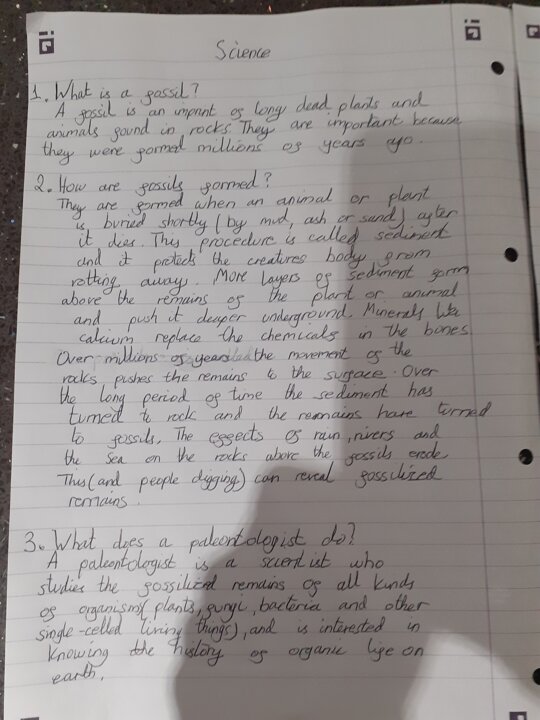 Science
1. What is a fossil?
A fossil is an imprint of long dead plants and
animals found in rocks They are important because
they were formed millions of years ago.
2. How are fossils formed?
They are formed when an animal or plant
is buried shortly (by mud, ash or sand) after
it dies. This procedure is called sediment
and it protects the creatures body from
rotting away. More layers of sediment form
above the remains of the plant or animal
and push it deeper underground. Minerals like
calcium replace the chemicals in the bones
Over millions of years the movement of the
rocks pushes the remains to the surface. Over
the long period of time the sediment has
turned to rock and the remains have turned
to fossils. The effects of rain, rivers and
the sea on the rocks above the fossils erode
This (and people digging) can reveal fossilized
remains.
3. What does a paleontologist do?
A paleontologist is a scientist who
studies the fossilized remains of all kinds
of organisms( plants, fungi, bacteria and other
single-celled living things), and is interested in
knowing the history of organic life on
earth.